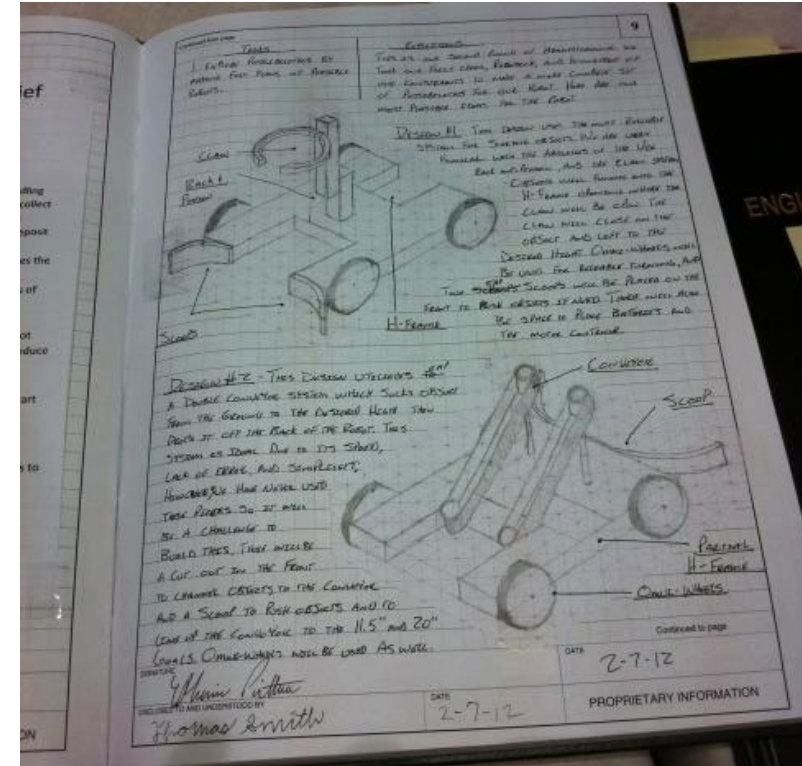 ief
nding
collect
eposit
es the
of
ot
educe
art
to
ON
ENGI
Continued from page
9
TASKS
1. EXPLORE POSSIBILITIES BY
MAKING FIRST PLANS OF POSSIBLE
ROBOTS.
THIS IS OUR SECOND ROUND OF BRAINSTORMING. WE
TOOK OUR FIRST IDEAS, RESEARCH, AND KNOWLEDGE OF
THE CONSTRAINTS TO MAKE A MORE COMPLETE SET
OF POSSIBILITIES FOR OUR ROBOT. HERE ARE OUR
MOST PLAUSIBLE IDEAS FOR THE ROBOT
DESIGN #1 THIS DESIGN USES THE MOST RELIABLE
SYSTEM FOR SCORING OBJECTS. WE ARE VERY
FAMILIAR WITH THE ABILITIES OF THE VEX
RACK AND PINION, AND THE CLAW SYSTEM
OBJECTS WILL FUNNEL INTO THE
H-FRAME OPENING WHERE THE
CLAW WILL BE OPEN. THE
CLAW WILL CLOSE ON THE
OBJECT AND LIFT TO THE
DESIRED HEIGHT. OMNI-WHEELS WILL
BE USED FOR RELIABLE TURNING, AND
TWO SCOOPS WILL BE PLACED ON THE
FRONT TO PUSH OBJECTS IF NEED. THERE WILL ALSO
BE SPACE TO PLACE BATTERIES AND
THE MOTOR CONTROLLER
CLAW
RACK &
PINION
SCOOPS
H-FRAME
DESIGN #2 - THIS DESIGN UTILIZES
A DOUBLE CONVEYOR SYSTEM WHICH SUCKS OBJECTS
FROM THE GROUND TO THE DESIRED HEIGHT THEN
DROPS IT OFF THE BACK OF THE ROBOT. THIS
SYSTEM IS IDEAL DUE TO ITS SPEED,
LACK OF ERROR, AND SIMPLICITY;
HOWEVER, WE HAVE NEVER USED
THESE PIECES SO IT WILL
BE A CHALLENGE TO
BUILD THIS. THERE WILL BE
A CUT OUT IN THE FRONT
TO CHANNEL OBJECTS TO THE CONVEYOR
AND A SCOOP TO PUSH OBJECTS AND TO
LINE UP THE CONVEYOR TO THE 11.5" AND 20"
GOALS. OMNI-WHEELS WILL BE USED AS WELL.
CONVEYOR
SCOOP
PARTIAL
H-FRAME
OMNI-WHEELS
Continued to page
SIGNATURE
DATE
2-7-12
DISCLOSED TO AND UNDERSTOOD BY
Thomas Smith
DATE
2-7-12
PROPRIETARY INFORMATION